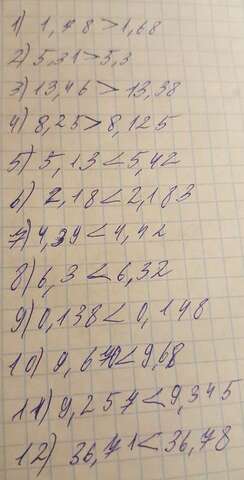 1) 1,78 > 1,68
2) 5,31 > 5,3
3) 13,46 > 13,38
4) 8,25 > 8,125
5) 5,13 < 5,42
6) 2,18 < 2,183
7) 4,39 < 4,42
8) 6,3 < 6,32
9) 0,138 < 0,148
10) 9,670 < 9,68
11) 9,257 < 9,345
12) 36,71 < 36,78